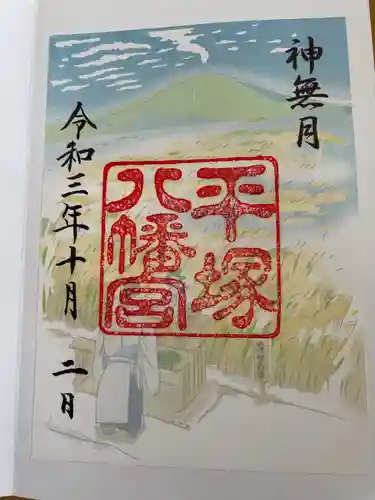 神無月
平塚
八幡宮
令和三年十月 二日